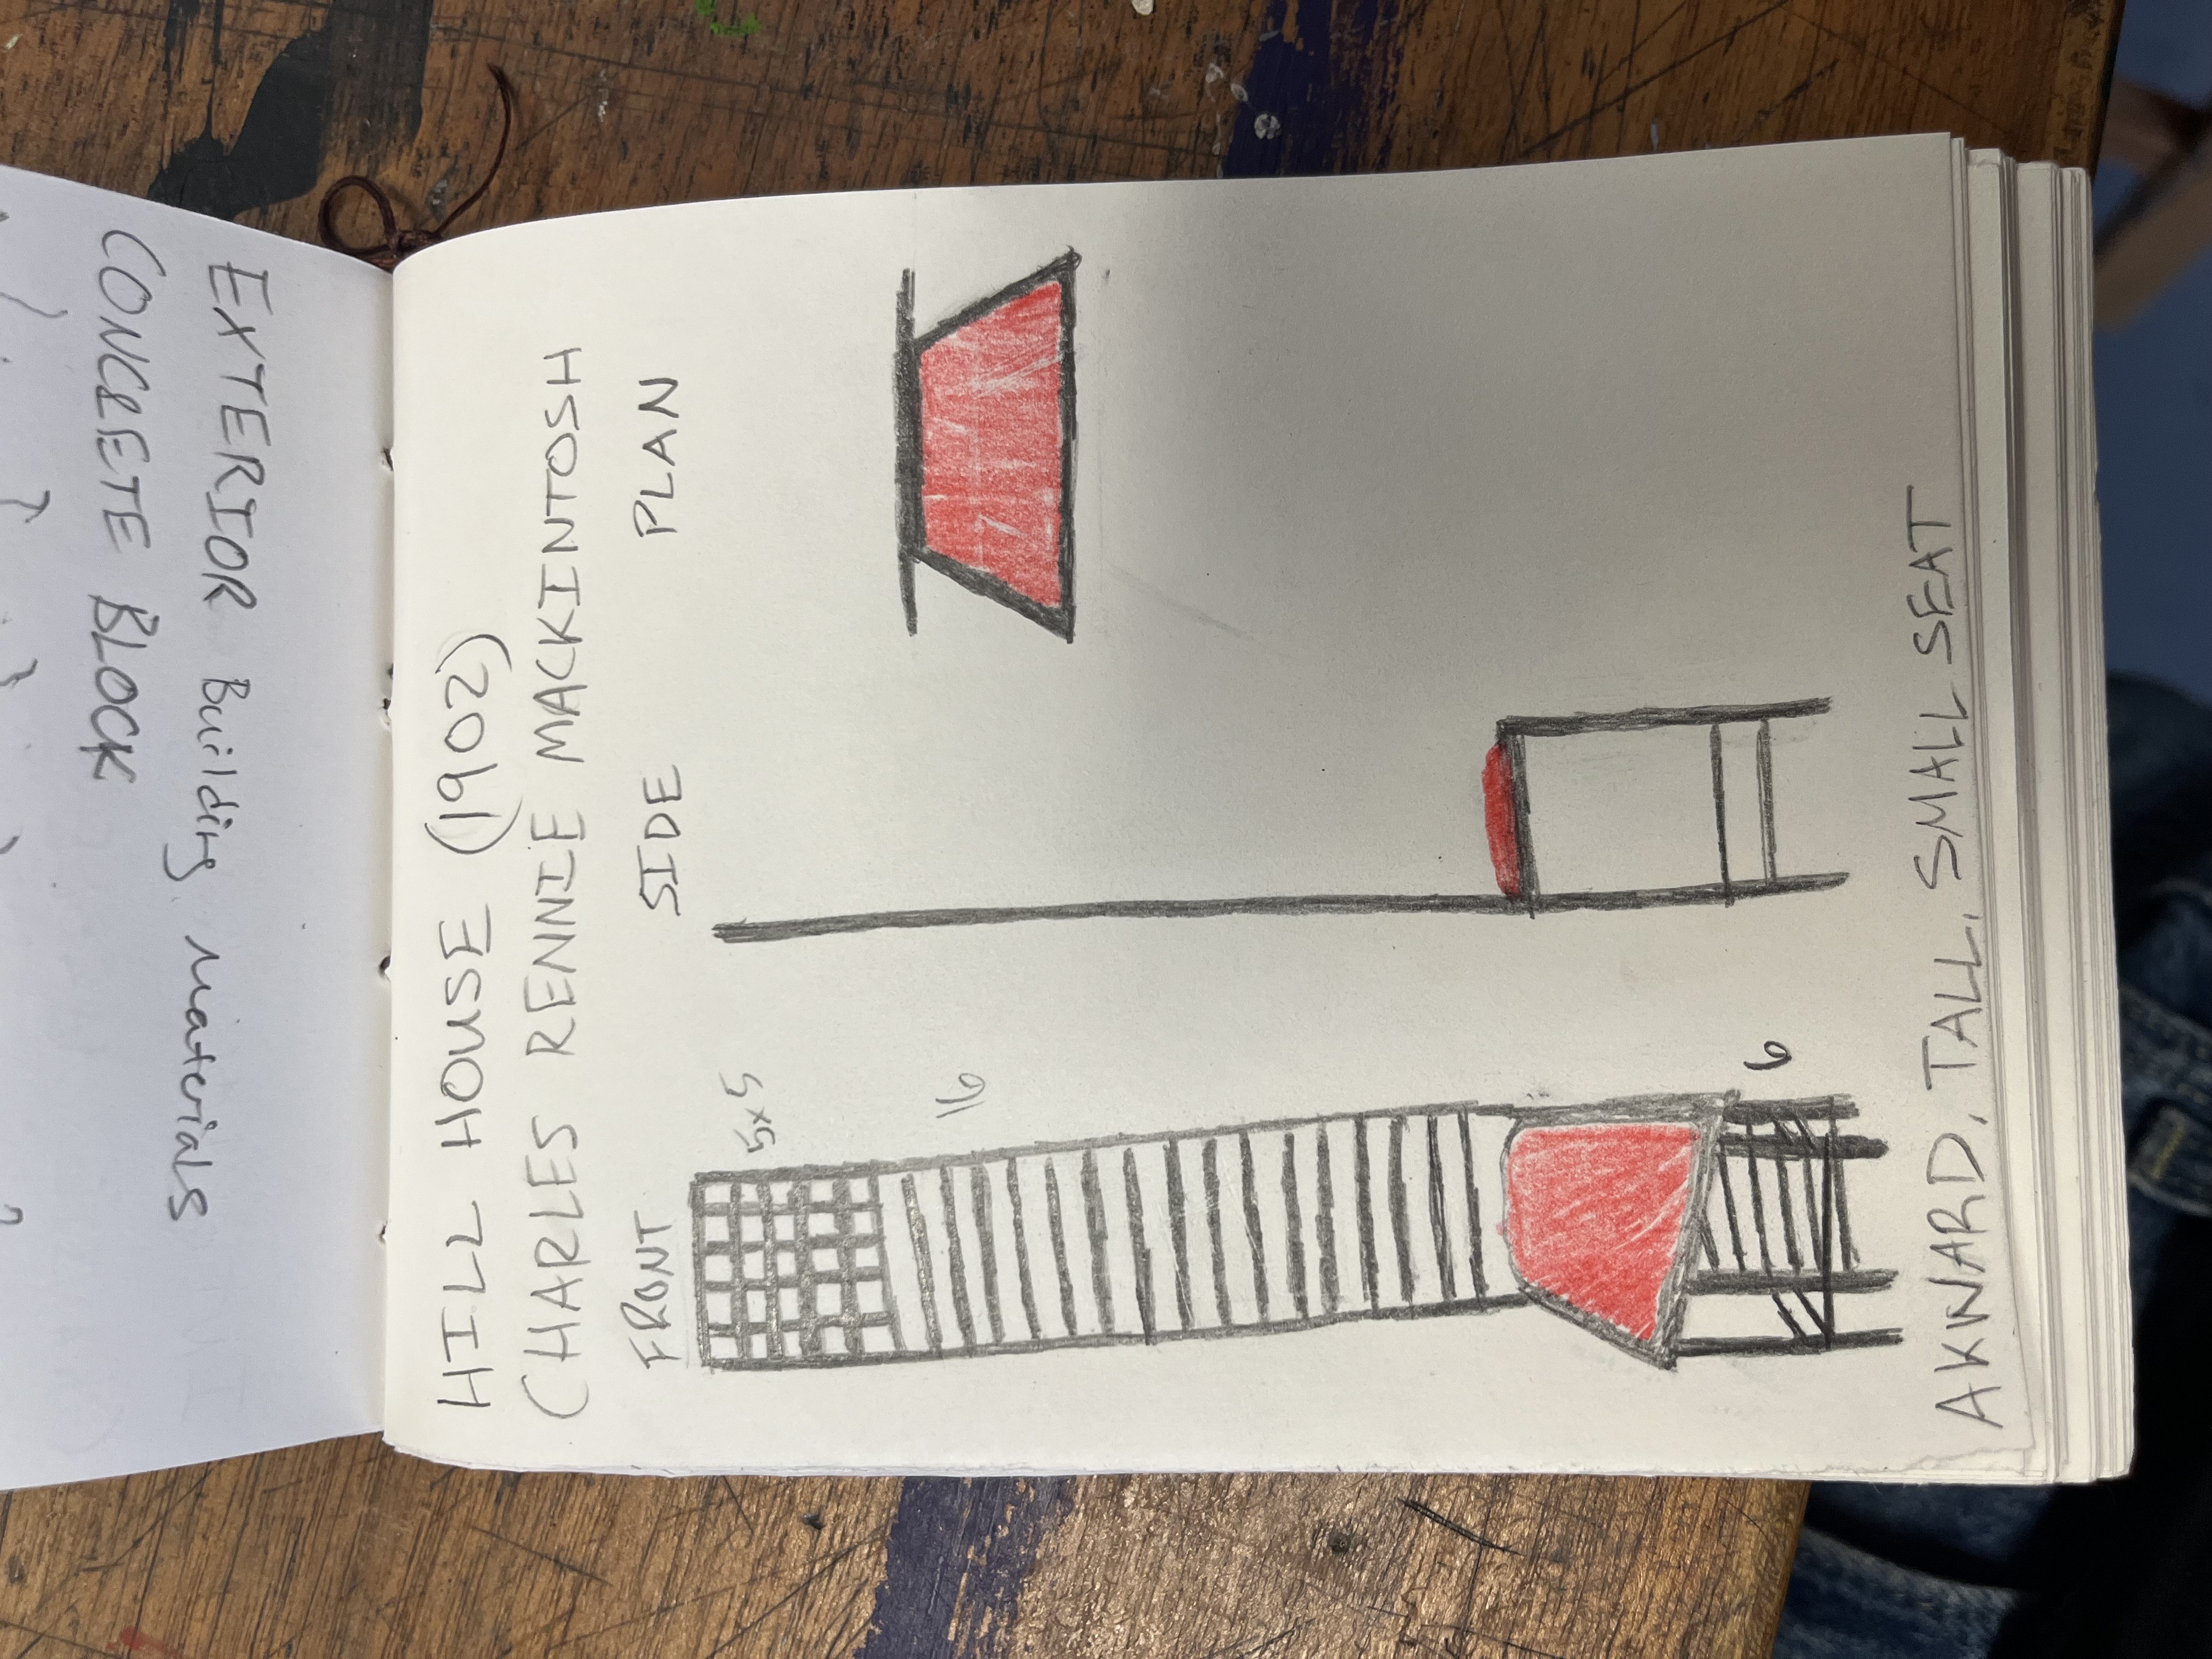 EXTERIOR Building Materials
CONCRETE BLOCK
HILL HOUSE (1902)
CHARLES RENNIE MACKINTOSH
FRONT SIDE PLAN
5x5
16
6
AKWARD, TALL, SMALL SEAT